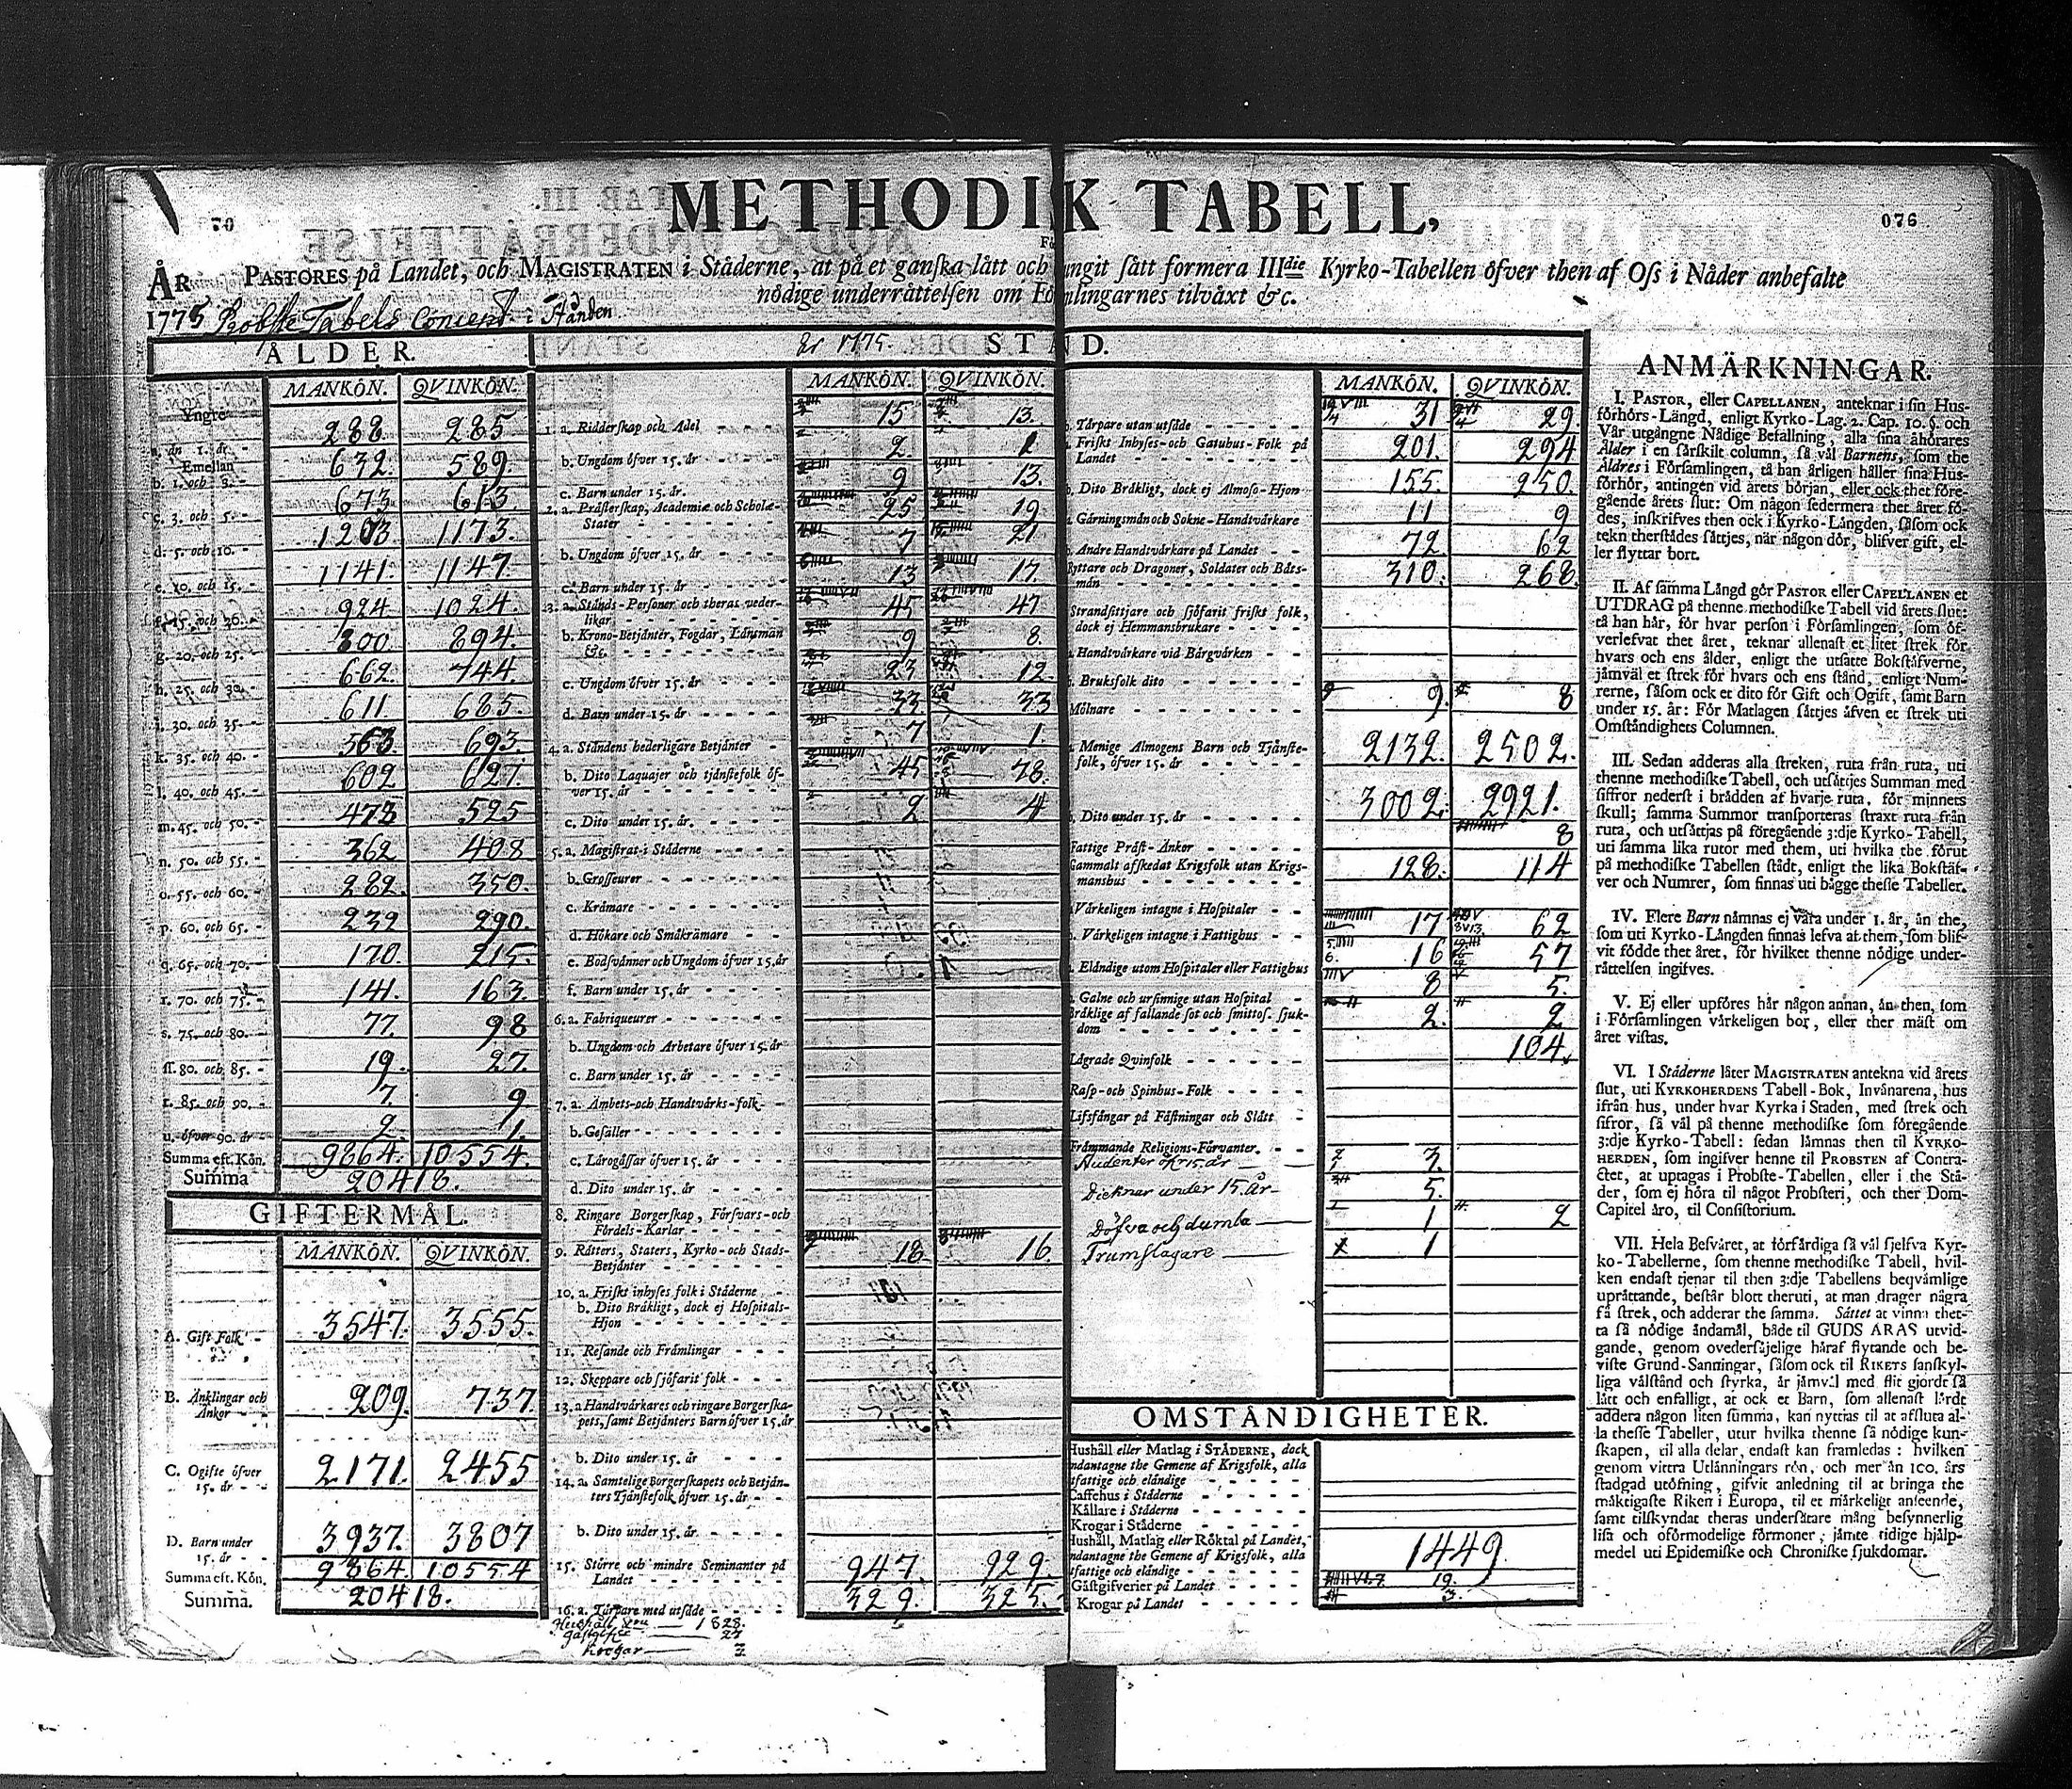 METHODIK TABELL,
70
076
ÅR PASTORES på Landet, och MAGISTRATEN i Ståderne, at på et ganska lått och ungit sått formera IIIdie Kyrko-Tabellen öfver then af Oss i Nåder anbefalte
nödige underråttelsen om Församlingarnes tilvåxt &c.
1775 Probste Tabels Concept i Stånden
ÅLDER.
MANKÖN. QVINKÖN.
Yngre
a. än 1. år - 288 285
Emellan
b. 1. och 3. - 632 589
c. 3. och 5. - 673 613
d. 5. och 10. - 1203 1173
e. 10. och 15. - 1141 1147
f. 15. och 20. - 924 1024
g. 20. och 25. - 800 894
h. 25. och 30. - 662 744
i. 30. och 35. - 611 685
k. 35. och 40. - 563 693
l. 40. och 45. - 602 627
m. 45. och 50. - 473 525
n. 50. och 55. - 362 408
o. 55. och 60. - 282 350
p. 60. och 65. - 232 290
q. 65. och 70. - 170 215
r. 70. och 75. - 141 163
s. 75. och 80. - 77 98
ss. 80. och 85. - 19 27
t. 85. och 90. - 7 9
u. öfver 90. år - 2 1
Summa eft. Kön. 9864. 10554.
Summa 20418.
GIFTERMÅL.
MANKÖN. QVINKÖN.
A. Gift Folk - 3547. 3555.
B. Änklingar och
Änkor - - 209. 737.
C. Ogifte öfver
15. år - - 2171. 2455
D. Barn under
15. år - - 3937. 3807
Summa eft. Kön. 9864 10554
Summa. 20418.
År 1775. STÅND.
MANKÖN. QVINKÖN.
1. a. Ridderskap och Adel 15 13.
b. Ungdom öfver 15. år 2. 1
c. Barn under 15. år. 9 13.
2. a. Pråsterskap, Academiæ och Scholæ-
Stater 25 19
b. Ungdom öfver 15. år 7 21
c. Barn under 15. år 13 17.
3. a. Stånds-Personer och theras veder-
likar 45 47
b. Krono-Betjänter, Fogdar, Länsmän
&c. 9 8
c. Ungdom öfver 15. år 23 12
d. Barn under 15. år 33 33
4. a. Ståndens hederligare Betjänter 7 1.
b. Dito Laquajer och tjänstefolk öf-
ver 15. år 45 78.
c. Dito under 15. år. 2 4
5. a. Magistrat i Ståderne
b. Grosseurer
c. Kråmare
d. Hökare och Småkråmare
e. Bodsvånner och Ungdom öfver 15. år
f. Barn under 15. år
6. a. Fabriqueurer
b. Ungdom och Arbetare öfver 15. år
c. Barn under 15. år
7. a. Ämbets- och Handtvårks-folk
b. Gesåller
c. Lårogåssar öfver 15. år
d. Dito under 15. år
8. Ringare Borgerskap, Försvars- och
Fördels-Karlar
9. Råtters, Staters, Kyrko- och Stads-
Betjänter 18 16
10. a. Friskt inhyses folk i Ståderne
b. Dito Bråkligt, dock ej Hospitals-
Hjon
11. Resande och Fråmlingar
12. Skeppare och sjöfarit folk
13. a Handtvårkares och ringare Borgerska-
pets, samt Betjänters Barn öfver 15. år
b. Dito under 15. år
14. a. Samtelige Borgerskapets och Betjän-
ters Tjänstefolk öfver 15. år
b. Dito under 15. år.
15. Större och mindre Seminanter på
Landet 947. 929.
16. a. Tårpare med utsåde 329. 325.
Hushåll 1828.
gästgife 27
krogar 3
MANKÖN. QVINKÖN.
b. Tårpare utan utsåde 31 29
Friskt Inhyses- och Gatuhus-Folk på
Landet 201. 294
Dito Bråkligt, dock ej Almoso-Hjon 155. 250.
Gärningsmån och Sokne-Handtvårkare 11 9
Andre Handtvårkare på Landet 72. 62
Ryttare och Dragoner, Soldater och Båts-
mån 310. 268.
Strandsittjare och sjöfarit friskt folk,
dock ej Hemmansbrukare
Handtvårkare vid Bårgvårken
Bruksfolk dito
Mölnare 9. 8
Menige Almogens Barn och Tjänste-
folk, öfver 15. år 2132. 2502.
Dito under 15. år 3002. 2921.
Fattige Pråst-Änkor 8
Gammalt afskedat Krigsfolk utan Krigs-
manshus 128. 114
Vårkeligen intagne i Hospitaler
Vårkeligen intagne i Fattighus 17 62
Elåndige utom Hospitaler eller Fattighus 16 57
Galne och ursinnige utan Hospital 8 5.
Bråklige af fallande sot och smittos. sjuk-
dom 2. 2
Lågrade Qvinfolk 104.
Rasp- och Spinhus-Folk
Lifsfångar på Fåstningar och Slått
Fråmmande Religions-Förvanter.
Studenter öfr 15 år 3.
Dieknar under 15. år 5.
Döfva och dumba 1 2
Trumslagare 1
OMSTÅNDIGHETER.
Hushåll eller Matlag i STÅDERNE, dock
undantagne the Gemene af Krigsfolk, alla
utfattige och elåndige
Caffehus i Ståderne
Kållare i Ståderne
Krogar i Ståderne
Hushåll, Matlag eller Röktal på Landet,
undantagne the Gemene af Krigsfolk, alla
utfattige och elåndige 1449.
Gåstgifverier på Landet 19.
Krogar på Landet 3.
ANMÄRKNINGAR.
I. PASTOR, eller CAPELLANEN, anteknar i sin Hus-
förhörs-Längd, enligt Kyrko-Lag. 2. Cap. 10. §. och
Vår utgångne Nådige Befallning, alla sina åhörares
Ålder i en sårskilt column, så vål Barnens, som the
Äldres i Församlingen, tå han årligen håller sina Hus-
förhör, antingen vid årets början, eller ock thet före-
gående årets slut: Om någon sedermera thet året fö-
des, inskrifves then ock i Kyrko-Långden, såsom ock
tekn therstådes såttjes, når någon dör, blifver gift, el-
ler flyttar bort.
II. Af samma Långd gör PASTOR eller CAPELLANEN et
UTDRAG på thenne methodiske Tabell vid årets slut:
tå han hår, för hvar person i Församlingen, som öf-
verlefvat thet året, teknar allenast et litet strek för
hvars och ens ålder, enligt the utsatte Bokståfverne,
jämvål et strek för hvars och ens stånd, enligt Num-
rerne, såsom ock et dito för Gift och Ogift, samt Barn
under 15. år: För Matlagen såttjes åfven et strek uti
Omståndighets Columnen.
III. Sedan adderas alla streken, ruta från ruta, uti
thenne methodiske Tabell, och utsåttjes Summan med
siffror nederst i brådden af hvarje ruta, för minnets
skull; samma Summor transporteras straxt ruta från
ruta, och utsåttjas på föregående 3:dje Kyrko-Tabell,
uti samma lika rutor med them, uti hvilka the förut
på methodiske Tabellen stådt, enligt the lika Bokståf-
ver och Numrer, som finnas uti bägge thesse Tabeller.
IV. Flere Barn nåmnas ej vara under 1. år, ån the,
som uti Kyrko-Långden finnas lefva at them, som blif-
vit födde thet år, för hvilket thenne nödige under-
råttelsen ingifves.
V. Ej eller upföres hår någon annan, ån then, som
i Församlingen vårkeligen bor, eller ther måst om
året vistas.
VI. I Ståderne låter MAGISTRATEN antekna vid årets
slut, uti KYRKOHERDENS Tabell-Bok, Invånarena, hus
ifrån hus, under hvar Kyrka i Staden, med strek och
sifror, så vål på thenne methodiske som föregående
3:dje Kyrko-Tabell: sedan låmnas then til KYRKO-
HERDEN, som ingifver henne til PROBSTEN af Contra-
ctet, at uptagas i Probste-Tabellen, eller i the Stå-
der, som ej höra til något Probsteri, och ther Dom-
Capitel åro, til Consistorium.
VII. Hela Besvåret, at förfårdiga så vål sjelfva Kyr-
ko-Tabellerne, som thenne methodiske Tabell, hvil-
ken endast tjenar til then 3:dje Tabellens beqvåmlige
upråttande, består blott theruti, at man drager några
få strek, och adderar the samma. Såttet at vinna thet-
ta så nödige åndamål, både til GUDS ÅRAS utvid-
gande, genom ovedersåjelige håraf flytande och be-
viste Grund-Sanningar, såsom ock til RIKETS sanskyl-
liga vålstånd och styrka, år jåmvål med flit gjordt så
lått och enfalligt, at ock et Barn, som allenast lårdt
addera någon liten summa, kan nyttjas til at afsluta al-
la thesse Tabeller, utur hvilka thenne så nödige kun-
skapen, til alla delar, endast kan framledas: hvilken
genom vittra Utlånningars rön, och mer ån 100. års
stadgad utöfning, gifvit anledning til at bringa the
måktigaste Riken i Europa, til et mårkeligt anseende,
samt tilskyndat theras undersåtare mång besynnerlig
lisa och oförmodelige förmoner; jåmte tidige hjålp-
medel uti Epidemiske och Chroniske sjukdomar.